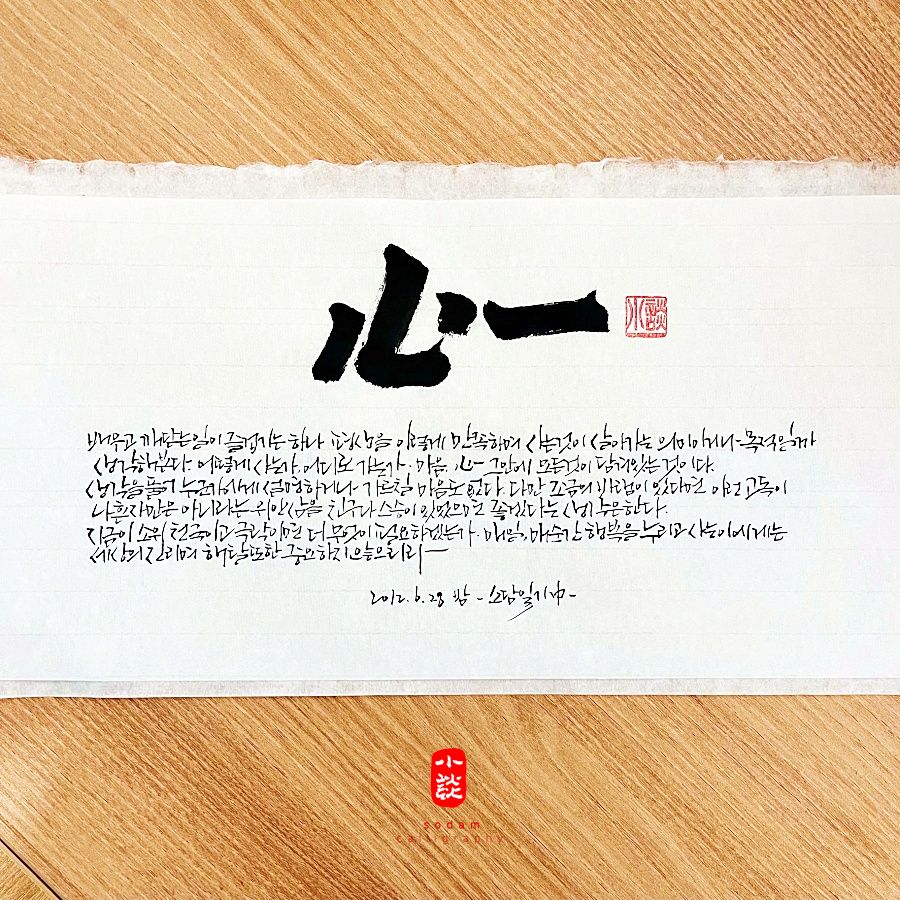 心一
小談
배우고 깨닫는 일이 즐겁기는 하나 평생을 이렇게 만족하며 사는것이 살아가는 의미이거나 목적일까
생각해본다. 어떻게 사는가, 어디로 가는가. 마음 心 그 안에 모든것이 담겨있는 것이다.
생각을 풀어 누구에게 설명하거나 가르칠 마음도 없다. 다만 조금의 바람이 있다면 이런 고독이
나 혼자만은 아니라는 위안 삼을 친구나 스승이 있었으면 좋겠다는 생각은 한다.
지금이 소위 천국이고 극락이면 더 무엇이 필요하겠는가. 매일, 매순간 행복을 누리고 사는 이에게는
세상의 진리며 해탈 또한 중요하지 않으리라
2012. 6. 28 밤 - 소담일기中 -
小談
sodam
calligraphy